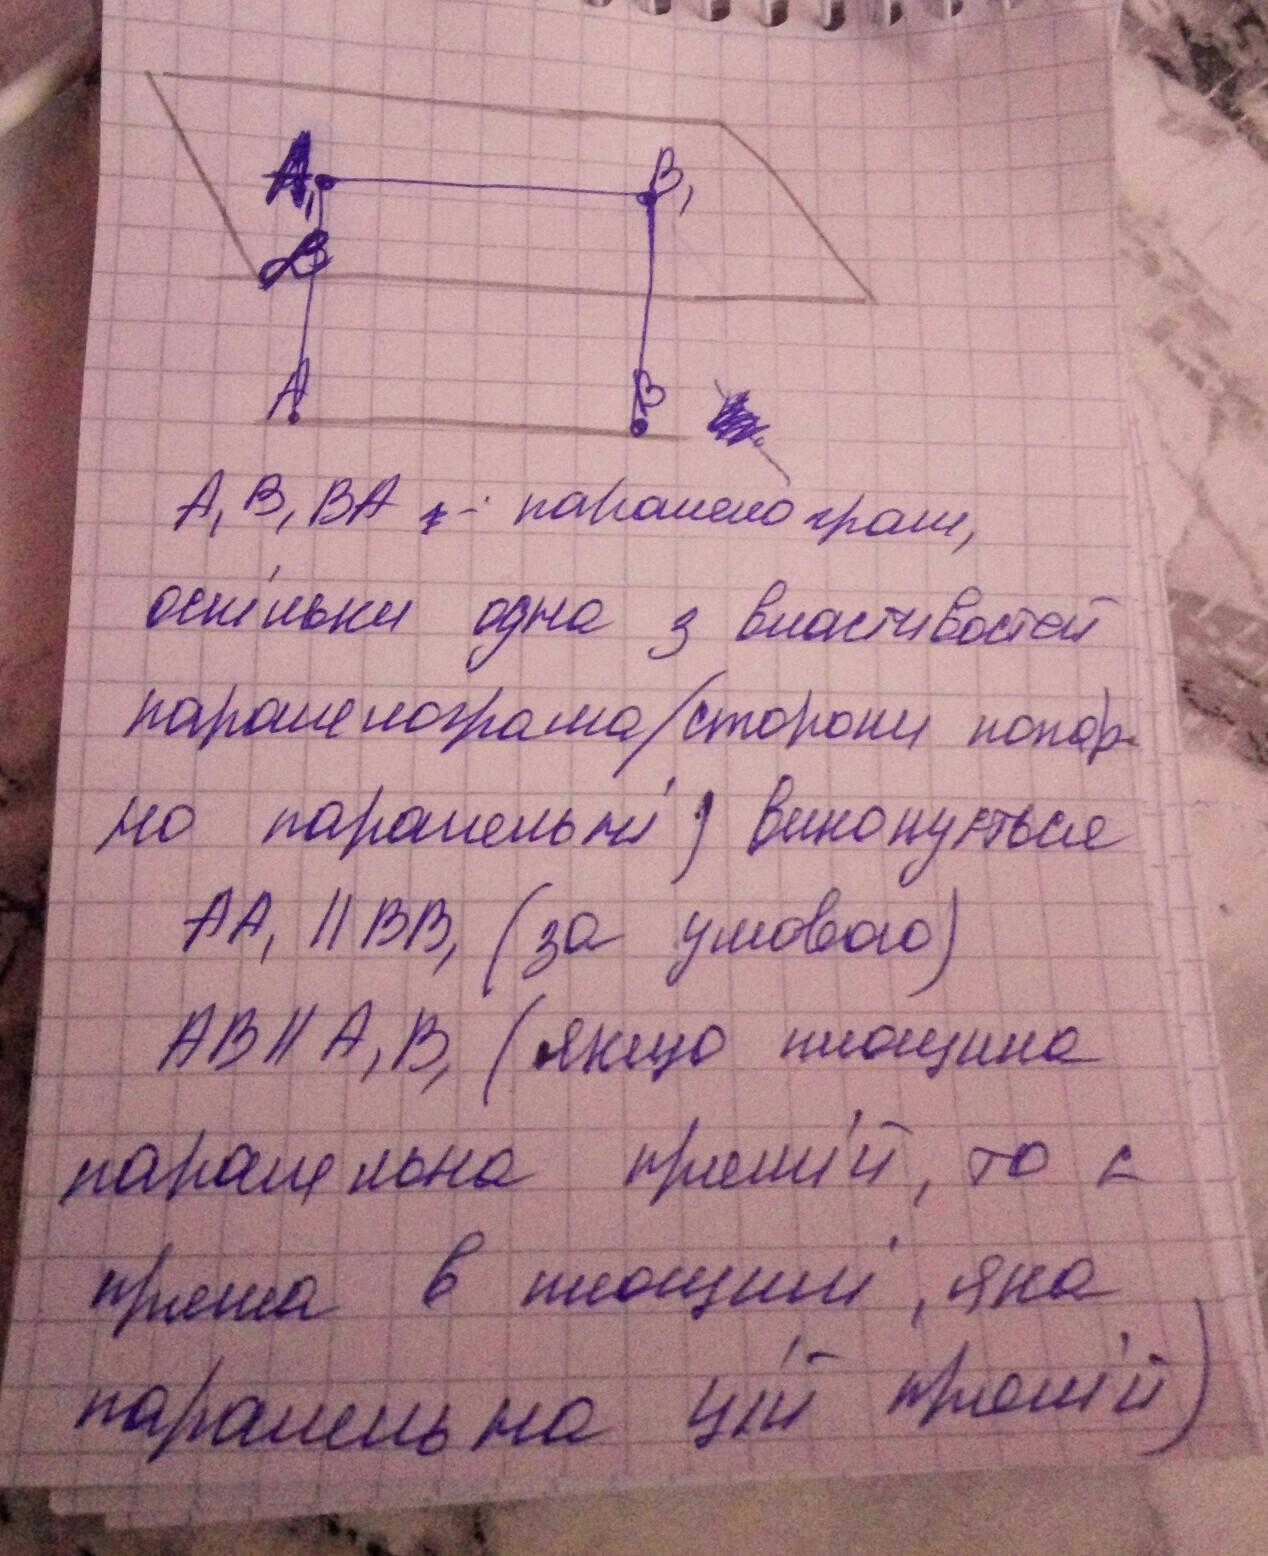 A₁ B₁
α
A B
A₁B₁BA - паралелограм,
оскільки одна з властивостей
паралелограма (сторони попар-
но паралельні) виконується
AA₁ || BB₁ (за умовою)
AB || A₁B₁ (якщо площина
паралельна прямій, то є
пряма в площині, яка
паралельна цій прямій)